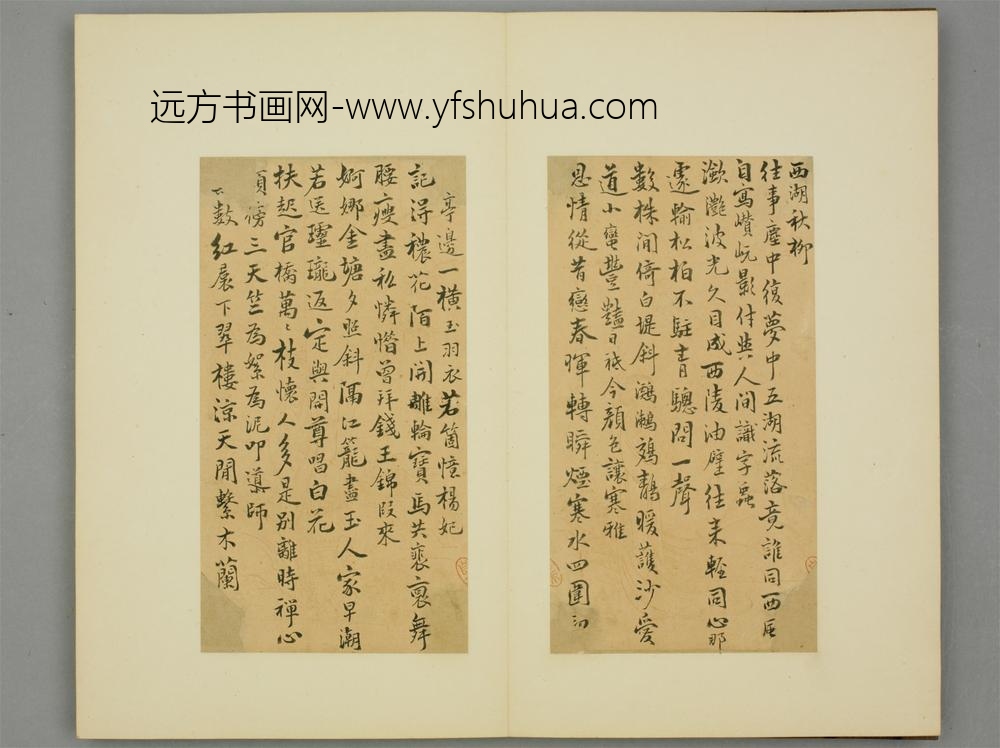 远方书画网-www.yfshuhua.com
西湖秋柳
往事塵中復夢中五湖流落竟誰同西風
自寫嶙峋影付與人間識字蟲
瀲灩波光久目成西陵油壁往来輕同心那
遽輸松柏不駐青驄問一聲
數株閒倚白堤斜鸂鶒鵁鶄暖護沙愛
道小蠻豐豔日祗今顏色讓寒雅
恩情從昔戀春暉轉瞬煙寒水四圍
亭邊一橫玉羽衣若箇憶楊妃
記得穠花陌上開雕輪寶馬共裵裏舞
腰瘦盡私憐惜曾拜錢王錦段來
婀娜金塘夕照斜隔江籠盡玉人家早潮
若送璮瓏返定與閣尊唱白花
扶起官橋萬〻枝懷人多是别離時禪心
三天竺為絮為泥叩導師
數紅展下翠樓涼天閒繫木蘭